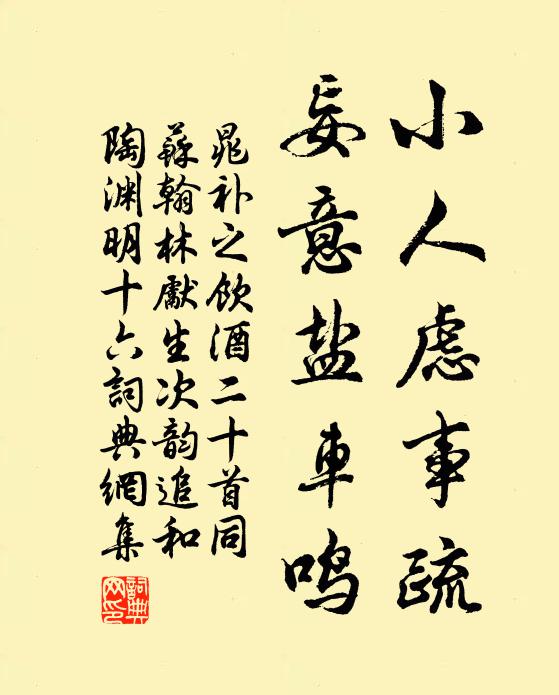 小人虑事疏
妄意盐車鸣
晁补之饮酒二十首同
蘇翰林獻生次韵追和
陶渊明十六詞典網集
詞典
网印